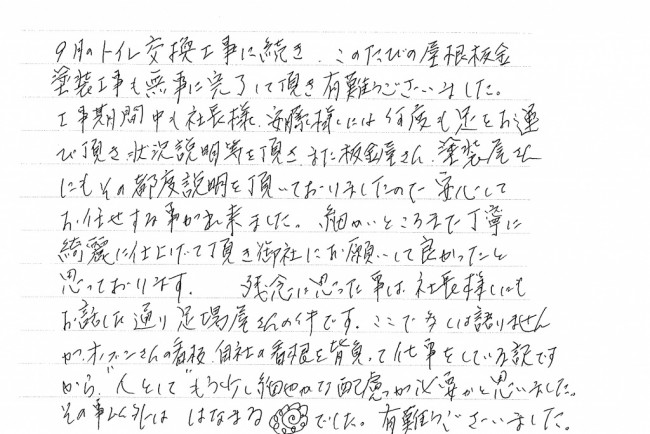 9月のトイレ交換工事に続き、このたびの屋根板金
塗装工事も無事に完了して頂き有難うございました。
工事期間中も社長様、安藤様には何度も足をお運
び頂き、状況説明等を頂き、また板金屋さん、塗装屋さん
にもその都度説明を頂いておりましたので安心して
お任せする事が出来ました。細かいところまで丁寧に
綺麗に仕上げて頂き御社にお願いして良かったと
思っております。 残念に思った事は社長様にも
お話した通り足場屋さんの件です。ここで多くは語りません
が、さんの看板、自社の看板を背負って仕事をしている訳です
から、"人として"もう少し細やかな配慮が必要かと思いました。
その事以外は はなまる でした。有難うございました。